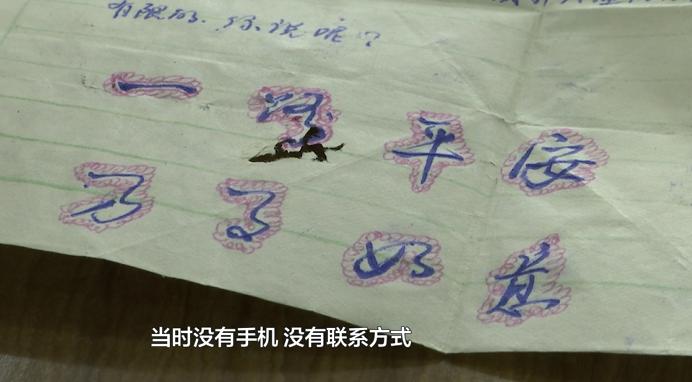 有限的，你说呢？
一路平安
万事如意
当时没有手机 没有联系方式